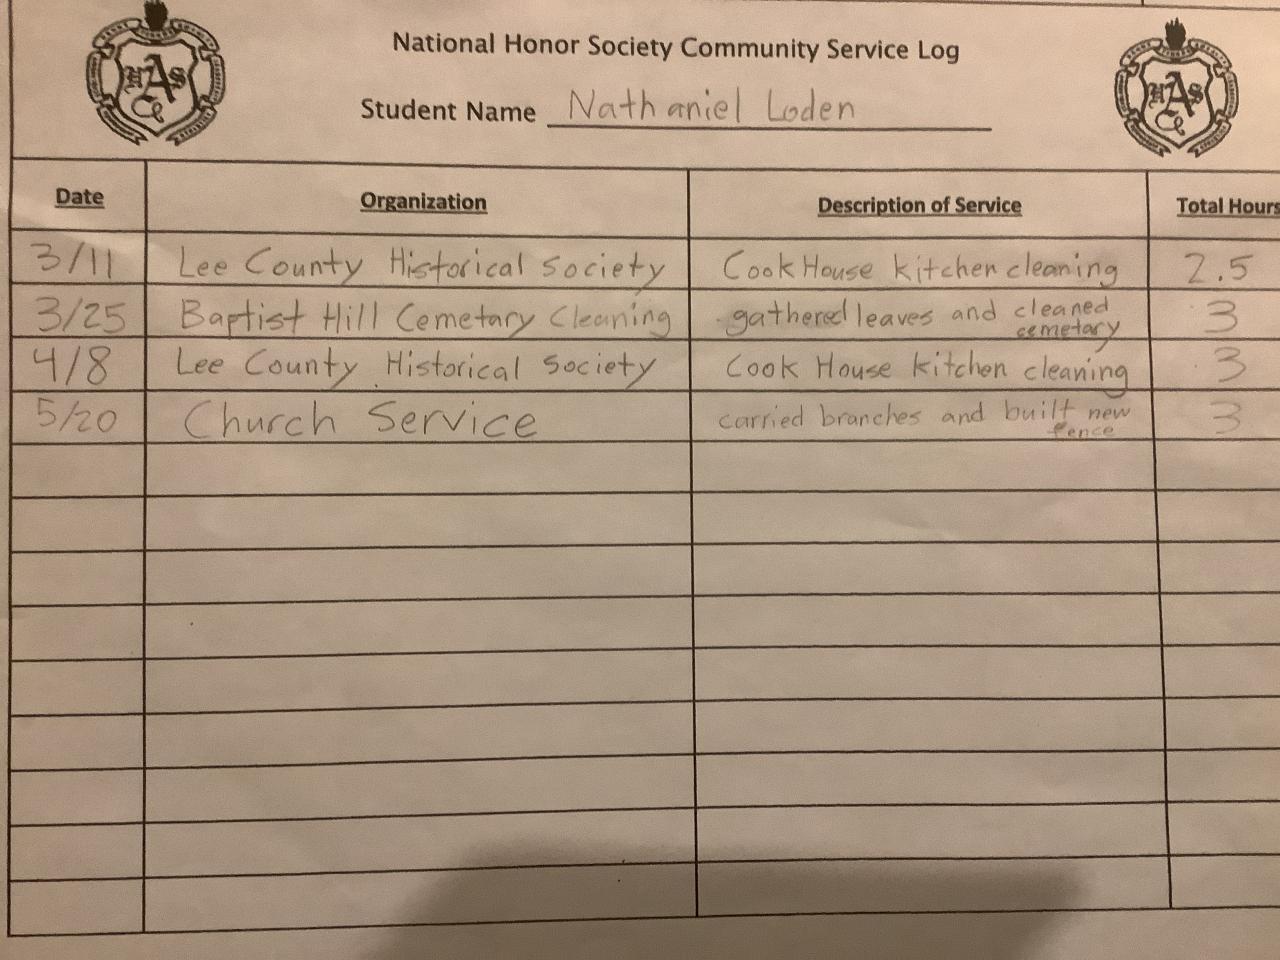 National Honor Society Community Service Log
Student Name Nathaniel Loden
Date Organization Description of Service Total Hours
3/11 Lee County Historical Society Cook House kitchen cleaning 2.5
3/25 Baptist Hill Cemetary Cleaning gathered leaves and cleaned cemetary 3
4/8 Lee County Historical Society Cook House kitchen cleaning 3
5/20 Church Service carried branches and built new fence 3